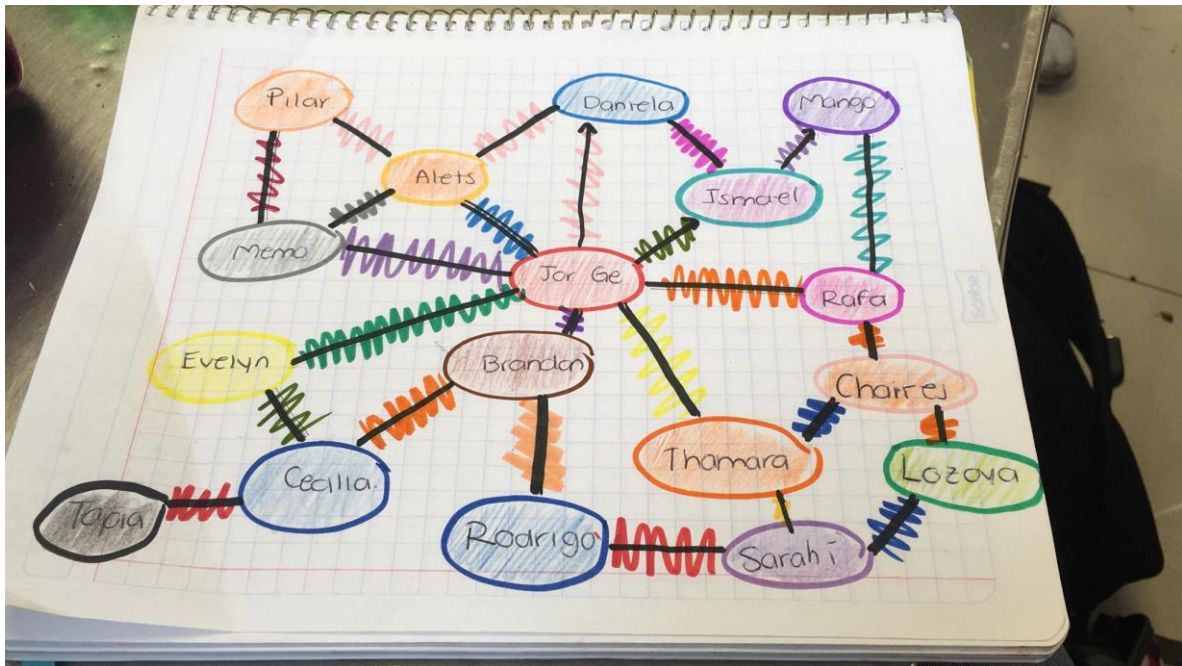 Pilar
Daniela
Mango
Alets
Ismael
Memo
Jor Ge
Rafa
Evelyn
Brandon
Chairres
Thamara
Lozoya
Cecilia.
Tapia
Rodrigo
Sarahi
Scribe